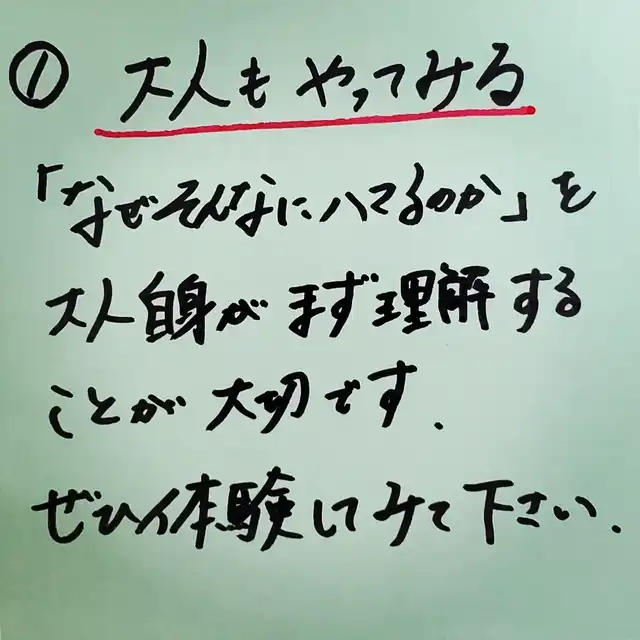 ① 大人も やってみる
「なぜそんなにハマるのか」を
大人自身が まず理解する
ことが 大切です.
ぜひ体験してみて下さい.